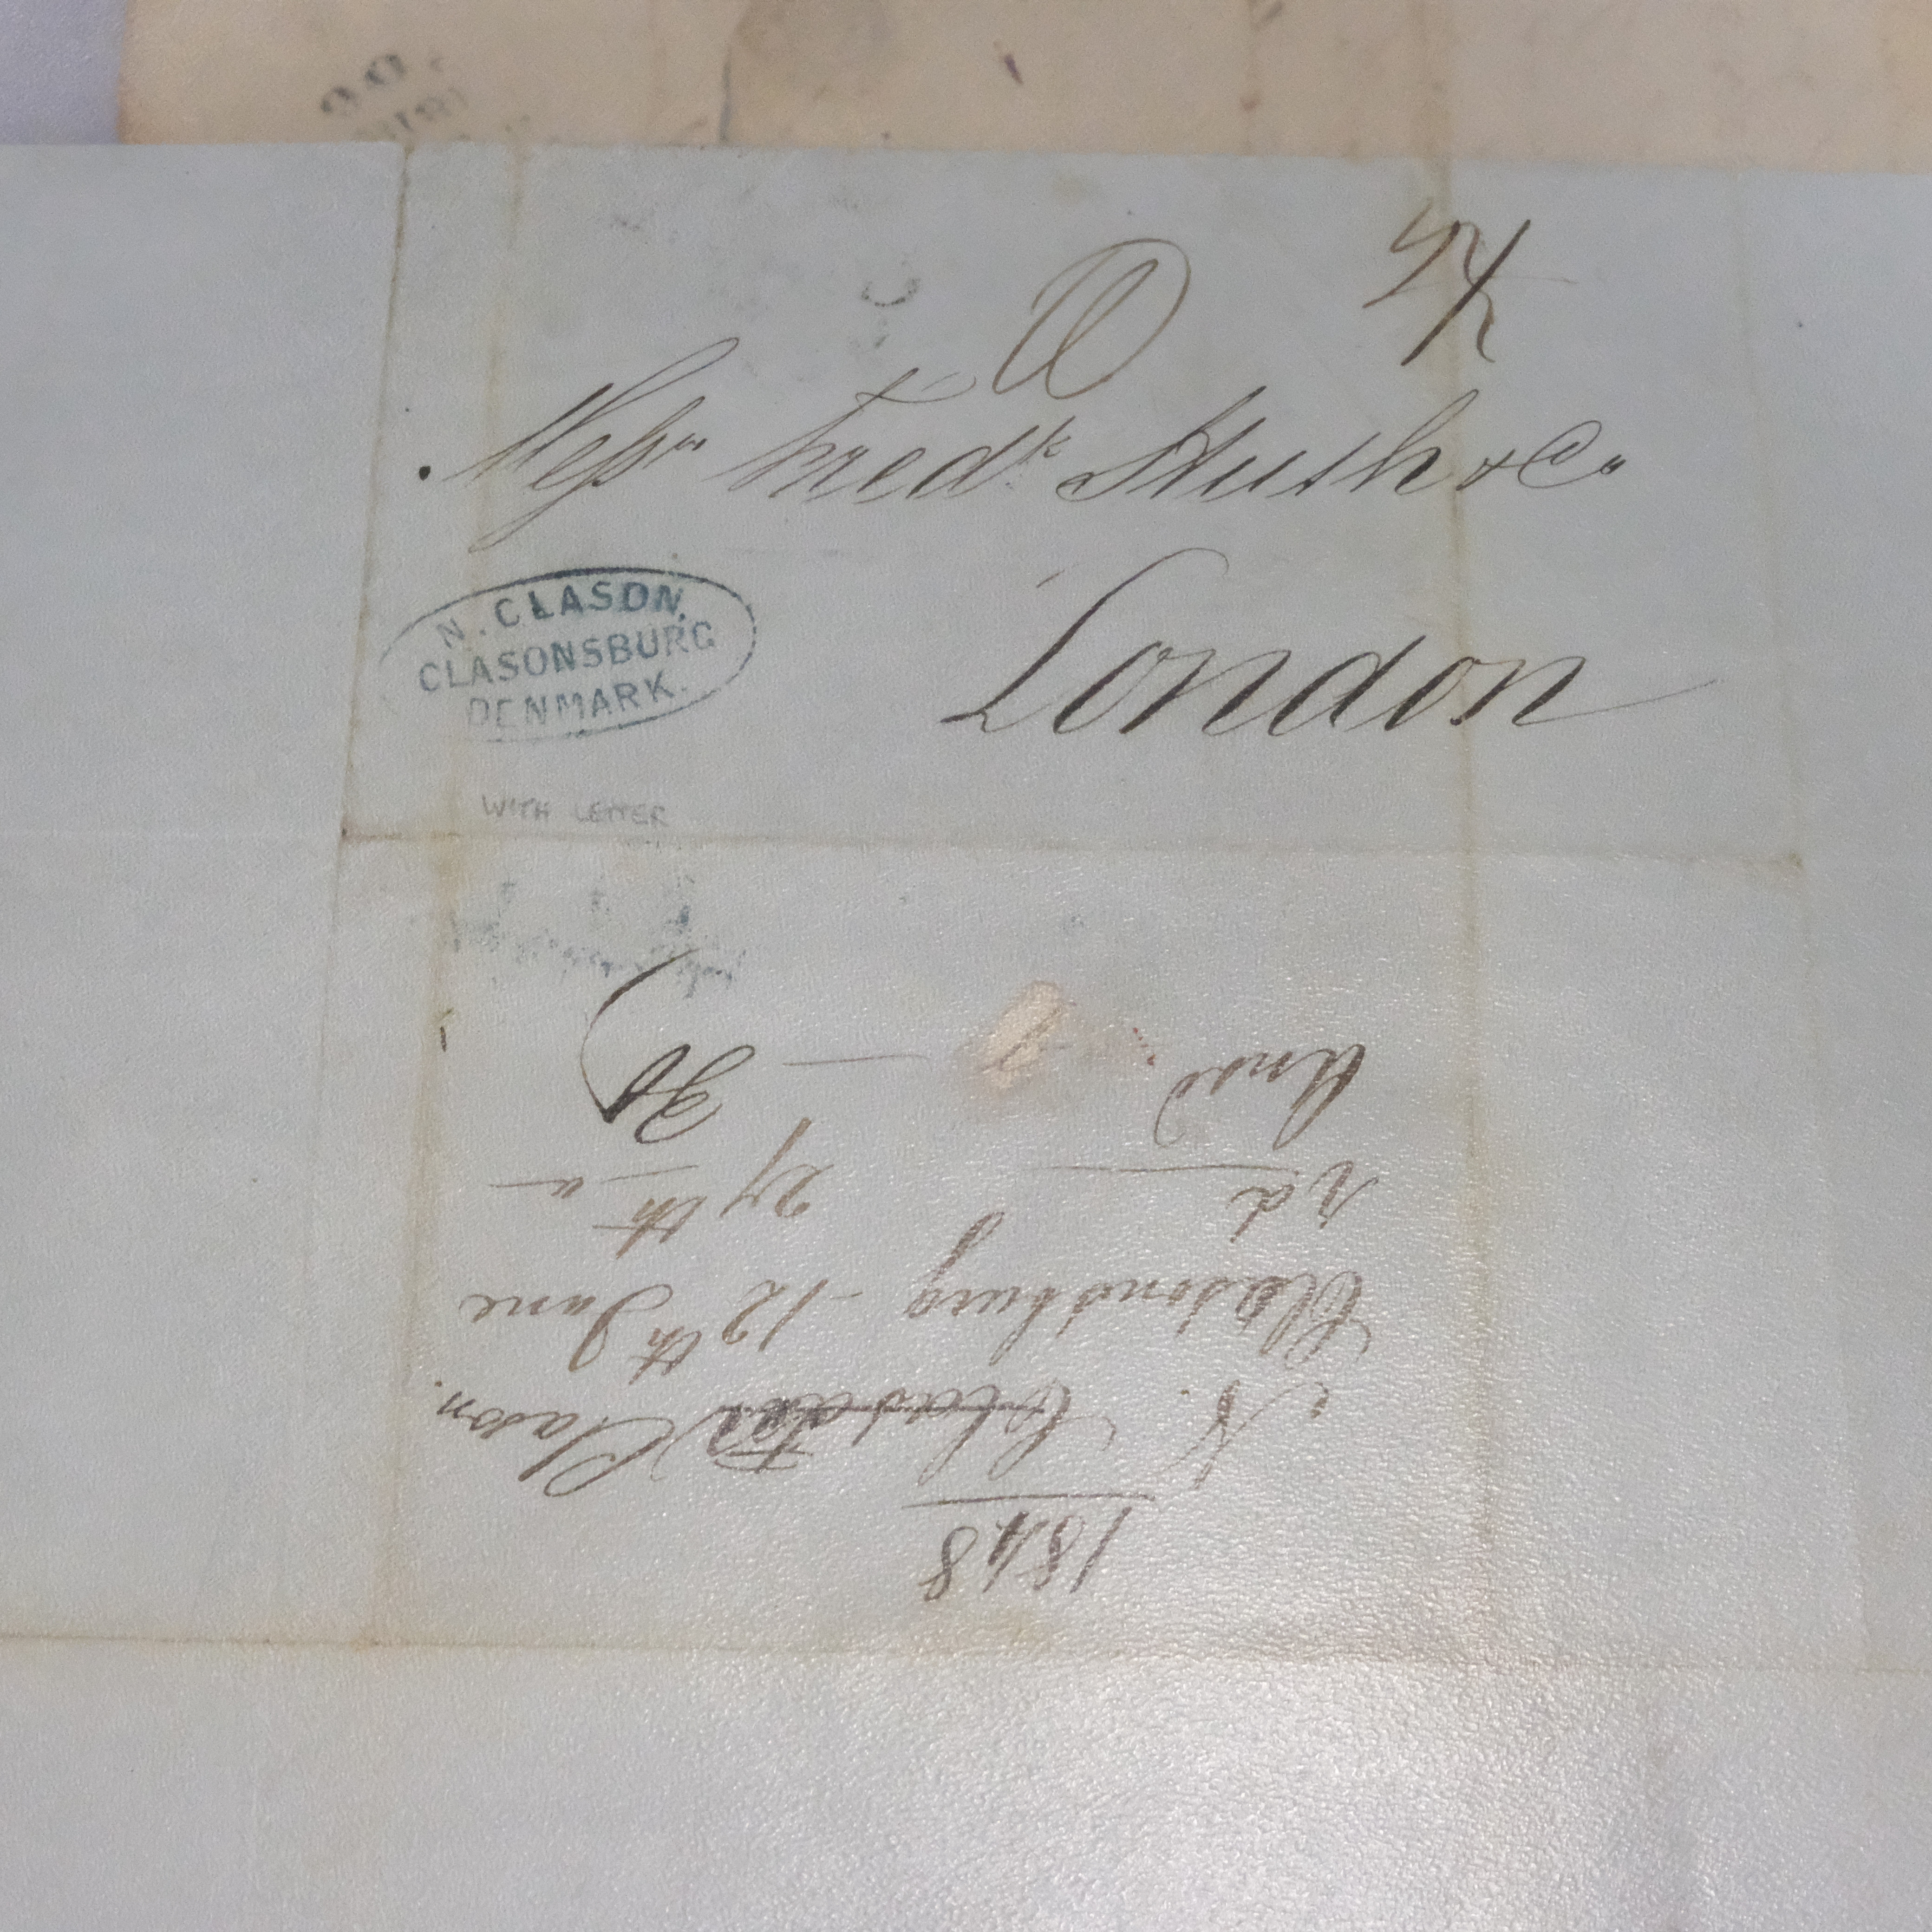 Messrs Fredk Huth & Co
London
N. CLASON,
CLASONSBURG
DENMARK.
WITH LETTER
1848
N Clason.
Clasonsburg - 12th June
rd 27th "
Ansd 30